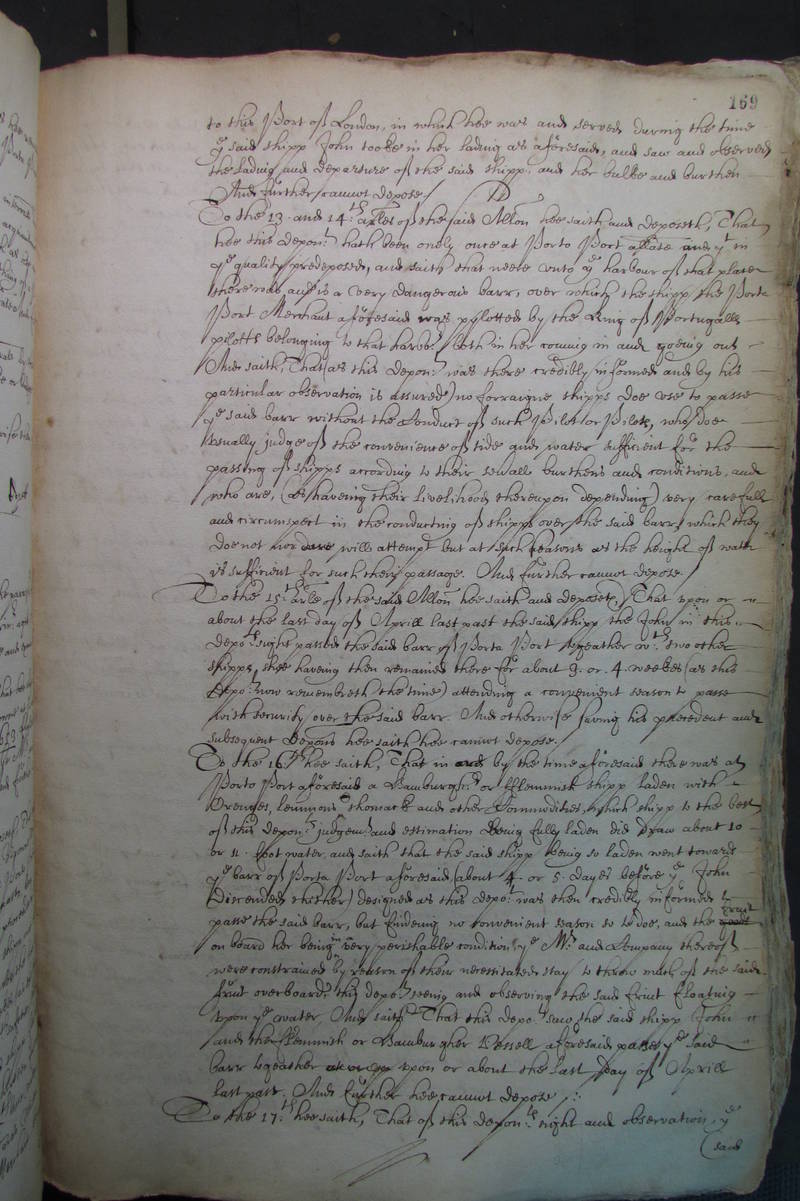 169
to this Port of London, in which hee was and served during the time
ye said shipp John tooke in her lading as aforesaid, and saw and observed
the lading and departure of the said shipp, and her bulke and burthen
And further cannot depose./
To the 13. and 14.th arles of the said Allon hee saith and deposeth, That
hee this depont hath been onely once at Porto Port in
ye quality predeposed, and saith that neere unto ye harbour of that place
there was and is a very dangerous barr, over which the shipp the Porta
Port Merchant aforesaid was pylotted by the King of Portugalls
pilotts belonging to that harbor both in her coming in and goeing out
And saith, That (as this depont was there credibly informed and by his
particular observation is assured) no forraigne shipps doe use to passe
ye said barr without the Conduct of such Pilot or Pilots, who doe
usually judge of the convenience of tide and water sufficient for the
passing of shipps according to their severall burthens and conditions, and
who are, (as haveing their livelihoods thereupon depending) very carefull
and circumspect in the conducting of shipps over the said barr, which they
doe not nor will attempt but at such seasons as the height of water
is sufficient for such their passage. And further cannot depose.
To the 15.th arle of the said Allon hee saith and deposeth, That upon or
about the last day of Aprill last past the said shipp the John in this
depots sight passed the said barr of Porta Port togeather wth two other
shipps, shee haveing then remained there for about 3. or. 4. weekes (as this
depot now remembreth the time) attending a convenient season to passe
with security over the said barr. And otherwise saving his precedent and
subsequent depons hee saith hee cannot depose.
To the 16th hee saith, That in and by the time aforesaid there was at
Porto Port aforesaid a Hamburghr or fflemmish shipp laden with
Orenges, lemmons, and other Commodities, which shipp to the best
of this depon.ts judgemt and estimation being fully laden did draw about 10
or 11. foot water, and saith that the said shipp being so laden went toward
ye barr of Porta Port aforesaid (about 4. or 5. dayes before ye John
discended thither) designed as this depot was then credibly informed to
passe the said barr, but findeing no convenient season so to doe, and the fruit
on board her being in very perishable condition, ye Mr. and Company thereof
were constrained by reason of their necessitated stay to throw much of the said
fruit overboard, this depot seeing and observing the said fruit floating
upon ye water. And saith That this depot saw the said shipp John
and the fflemmish or Hamburgher Vessell aforesaid passe ye said
barr togeather upon or about the last day of Aprill
last past. And further hee cannot depose./:
To the 17.th hee saith, That of this depon.ts sight and observation, ye
said